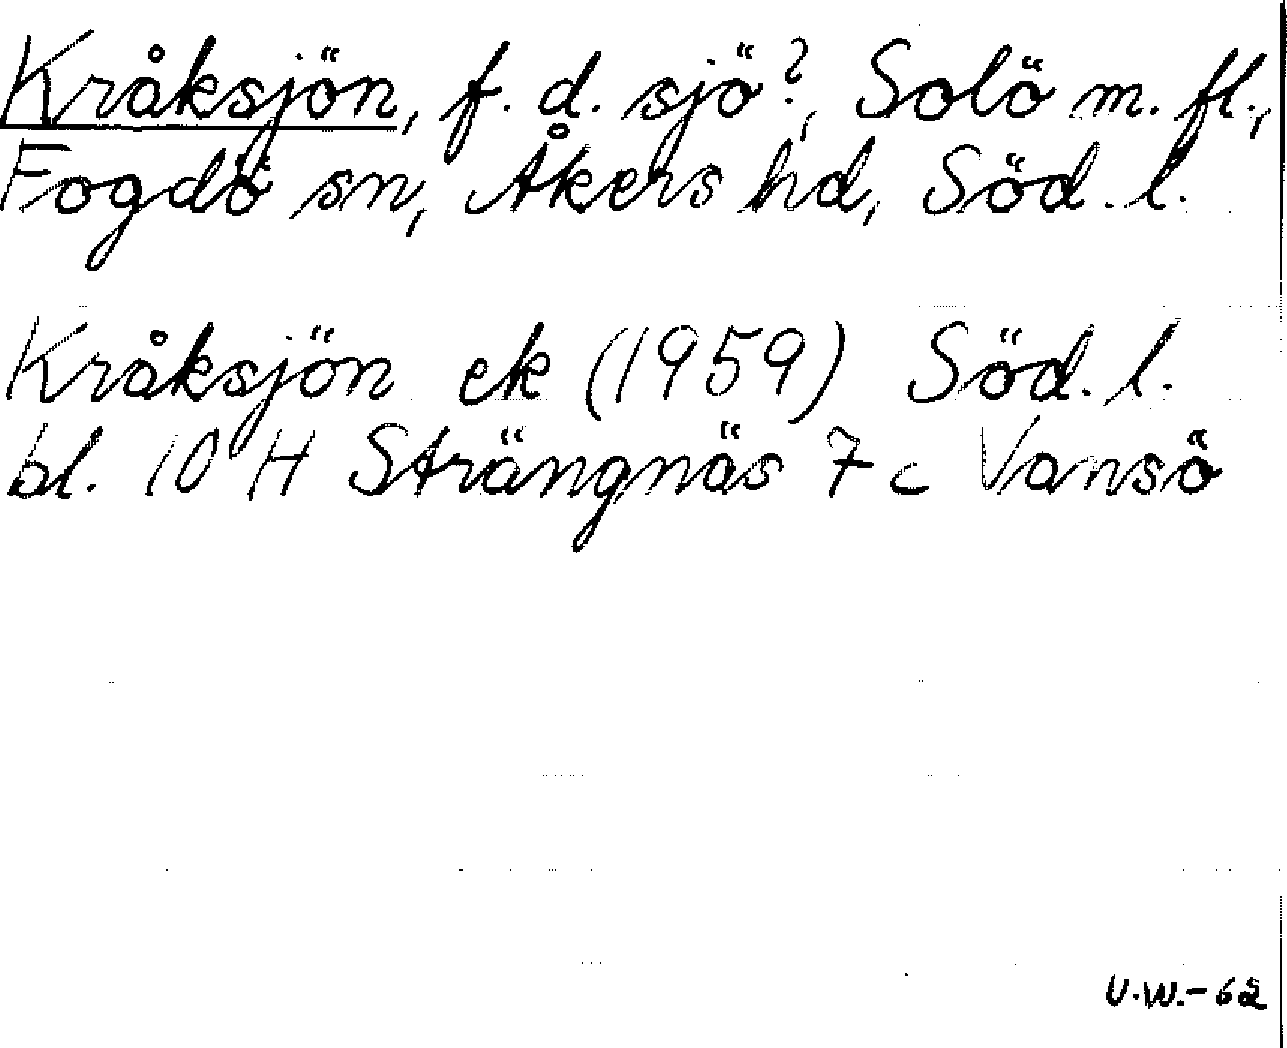 Kråksjön, f. d. sjö?, Solö m. fl.,
Fogdö sn, Åkers hd, Söd. l.
Kråksjön ek (1959) Söd. l.
bl. 10 H Strängnäs 7 c Vansö
U.W.-62